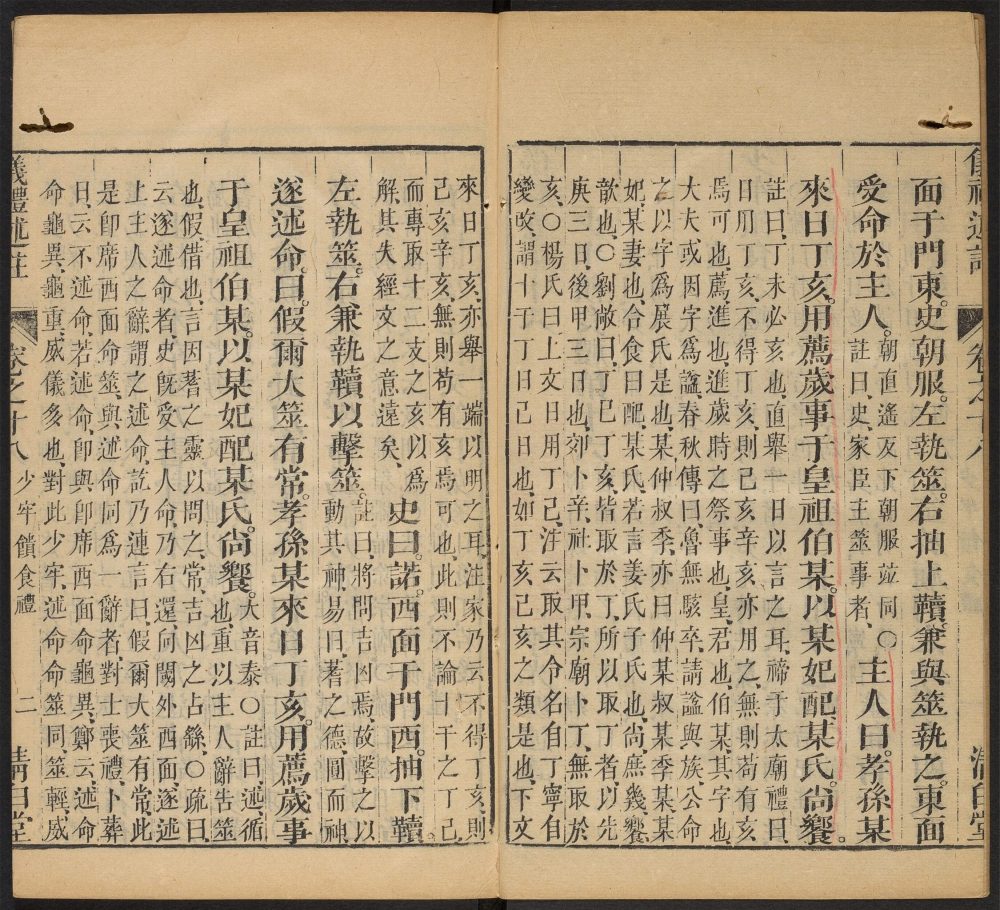 儀禮述註 卷之十八 清白堂
面于門東。史朝服。左執筮。右抽上韇。兼與筮執之。東面
受命於主人。朝直遙反下朝服竝同○註曰、史家臣主筮事者、主人曰。孝孫某
來日丁亥。用薦歲事于皇祖伯某。以某妃配某氏。尚饗。
註曰、丁未必亥也、直舉一日以言之耳、禘于太廟禮曰、
日用丁亥、不得丁亥、則己亥辛亥亦用之、無則苟有亥
焉可也、薦、進也、進歲時之祭事也、皇、君也、伯某、其字也、
大夫或因字爲諡、春秋傳曰、魯無駭卒、請諡與族、公命
之以字爲展氏是也、某仲叔季、亦曰仲某叔某季某、某
妃、某妻也、合食曰配、某氏、若言姜氏子氏也、尚、庶幾、饗、
歆也、○劉敞曰、丁巳丁亥、皆取於丁、所以取丁者、以先
庚三日、後甲三日也、郊卜辛、社卜甲、宗廟卜丁、無取於
亥、○楊氏曰、上文日用丁己、注云取其令名、自丁寧、自
變改、謂十干丁日己日也、如丁亥己亥之類是也、下文
來日丁亥、亦舉一端以明之耳、注家乃云不得丁亥、則
己亥辛亥、無則苟有亥焉可也、此則不論十干之丁己、
而專取十二支之亥以爲
解、其失經文之意遠矣、史曰。諾。西面于門西。抽下韇
左執筮。右兼執韇以擊筮。註曰、將問吉凶焉、故擊之以動其神、易曰、蓍之德圓而神、
遂述命。曰。假爾大筮有常。孝孫某。來日丁亥。用薦歲事
于皇祖伯某。以某妃配某氏。尚饗。大音泰○註曰、述、循也、重以主人辭告筮
也、假、借也、言因蓍之靈以問之、常、吉凶之占繇、○疏曰、
云遂述命者、史既受主人命、乃右還向闑外西面、遂述
上主人之辭、謂之述命、訖乃連言曰、假爾大筮有常、此
是卽席西面命筮、與述命同爲一辭者、對士喪禮、卜葬
日、云不述命、若述命、卽與卽席西面命龜異、鄭云、述命
命龜異、龜重、威儀多也、對此少牢、述命命筮同、筮輕、威
儀禮述註 卷之十八 少牢饋食禮 二 清白堂